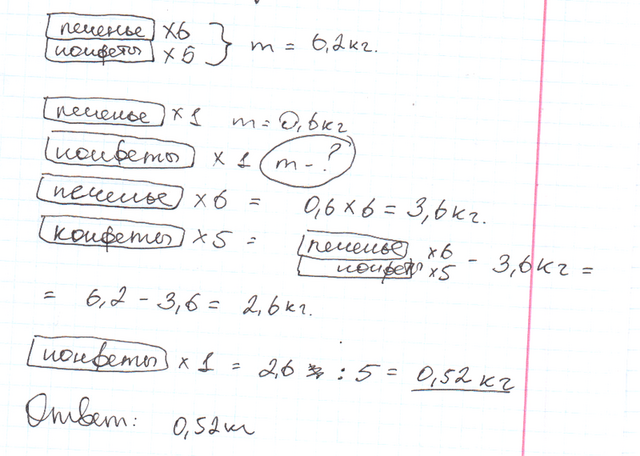 печенье x6
конфеты x5 } m = 6,2кг.
печенье x1 m = 0,6кг
конфеты x 1 m - ?
печенье x6 = 0,6 x 6 = 3,6кг.
конфеты x5 = печенье x6
конфеты x5 - 3,6кг =
= 6,2 - 3,6 = 2,6кг.
конфеты x 1 = 2,6 : 5 = 0,52 кг
Ответ: 0,52кг